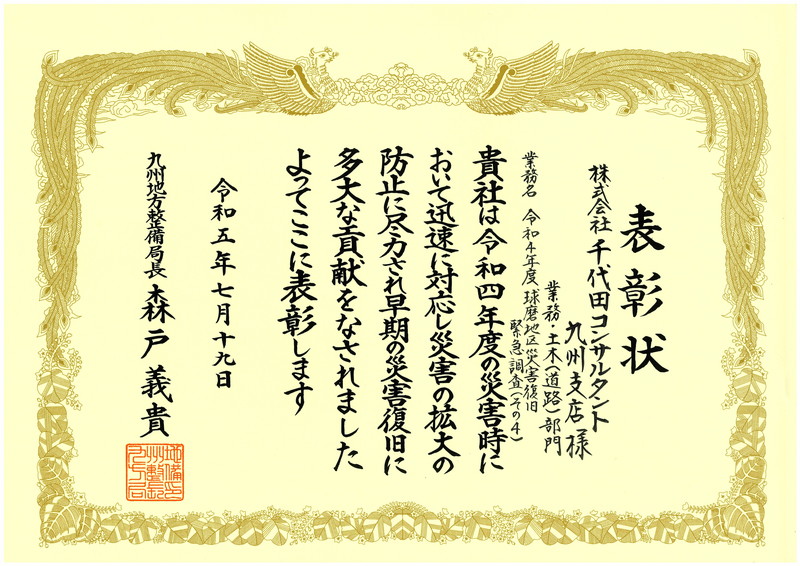 表彰状
株式会社 千代田コンサルタント
九州支店様
業務・土木(道路)部門
業務名 令和4年度 球磨地区災害復旧
緊急調査(その4)
貴社は令和四年度の災害時に
おいて迅速に対応し災害の拡大の
防止に尽力され早期の災害復旧に
多大な貢献をなされました
よってここに表彰します
令和五年七月十九日
九州地方整備局長 森戸義貴